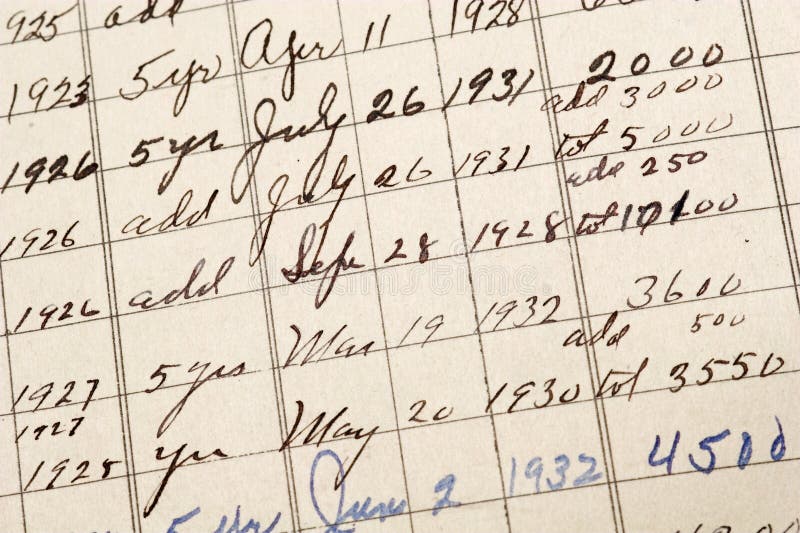 925 add 1928
1923 5 yr Apr 11
2000
1926 5 yr July 26 1931 add 3000
tot 5000
1926 add July 26 1931 add 250
1926 add Sep 28 1928 tot
3600
1927 5 yrs Mar 19 1932 add 500
1927
yr May 20 1930 tot 3550
5 yr June 2 1932 4500
dreamstime